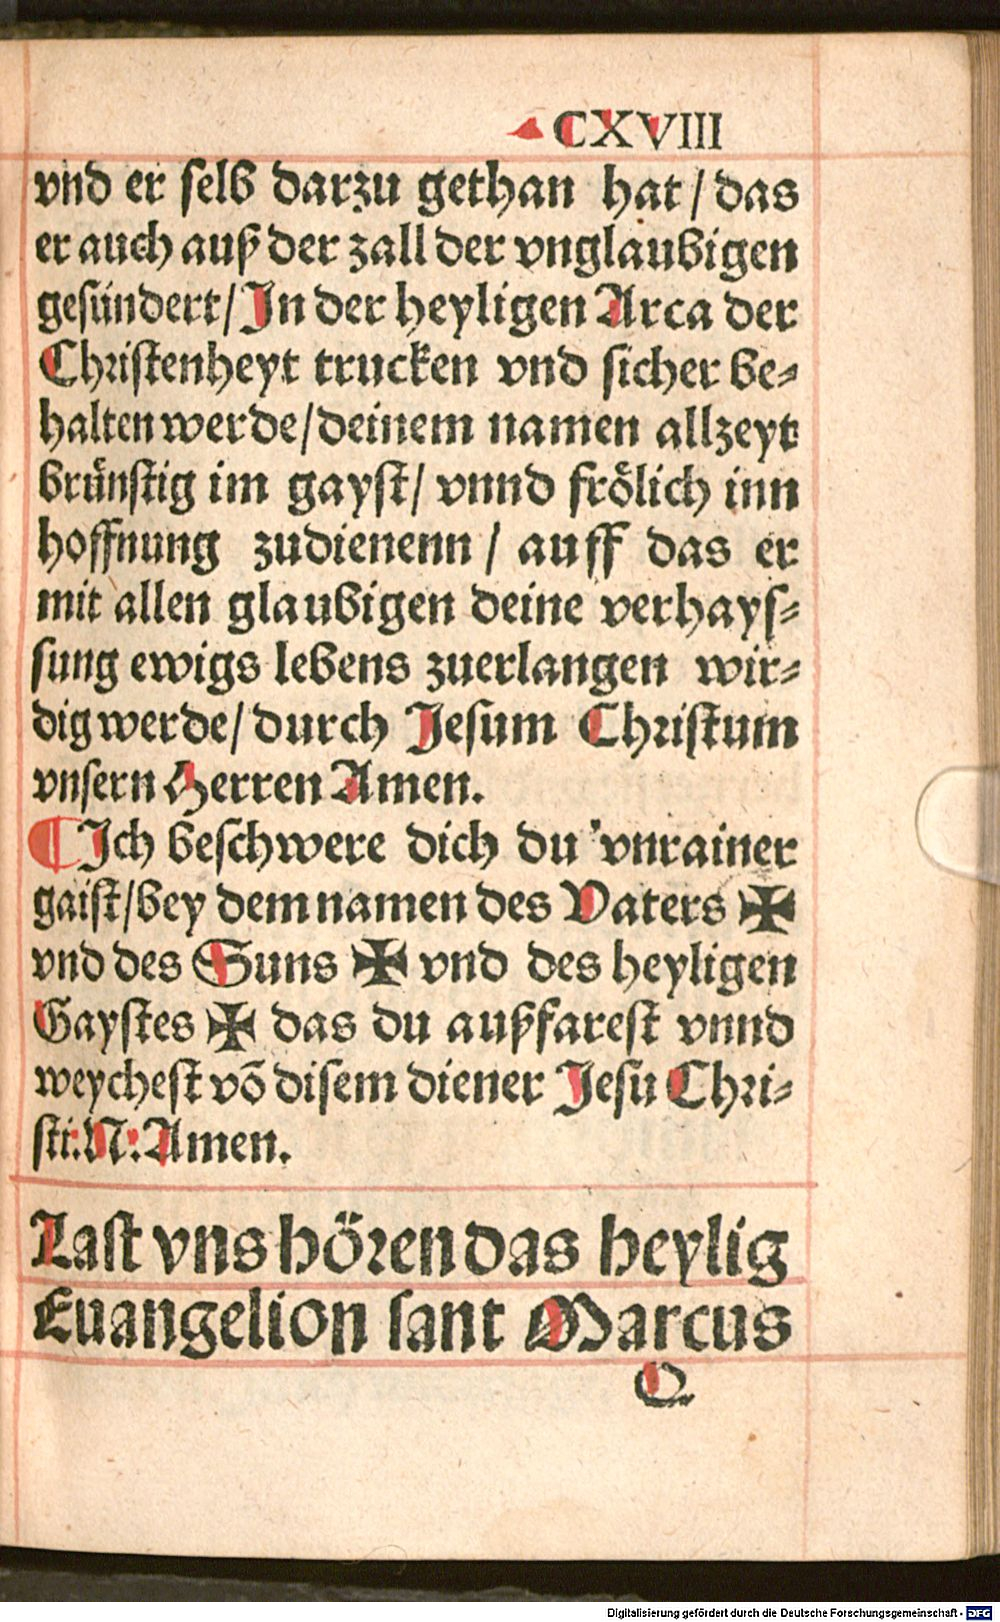 CXVIII
vnd er selb darzu gethan hat / das
er auch auß der zall der vnglaubigen
gesündert / In der heyligen Arca der
Christenheyt trucken vnd sicher be⸗
halten werde / deinem namen allzeyt
brünstig im gayst / vnnd frölich inn
hoffnung zudienenn / auff das er
mit allen glaubigen deine verhays⸗
sung ewigs lebens zuerlangen wir⸗
dig werde / durch Jesum Christum
vnsern Herren Amen.
¶ Ich beschwere dich du vnrainer
gaist / bey dem namen des Vaters ✠
vnd des Suns ✠ vnd des heyligen
Gaystes ✠ das du außfarest vnnd
weychest võ disem diener Jesu Chri⸗
sti: N: Amen.
Last vns hören das heylig
Euangelion sant Marcus
Q
Digitalisierung gefördert durch die Deutsche Forschungsgemeinschaft - DFG